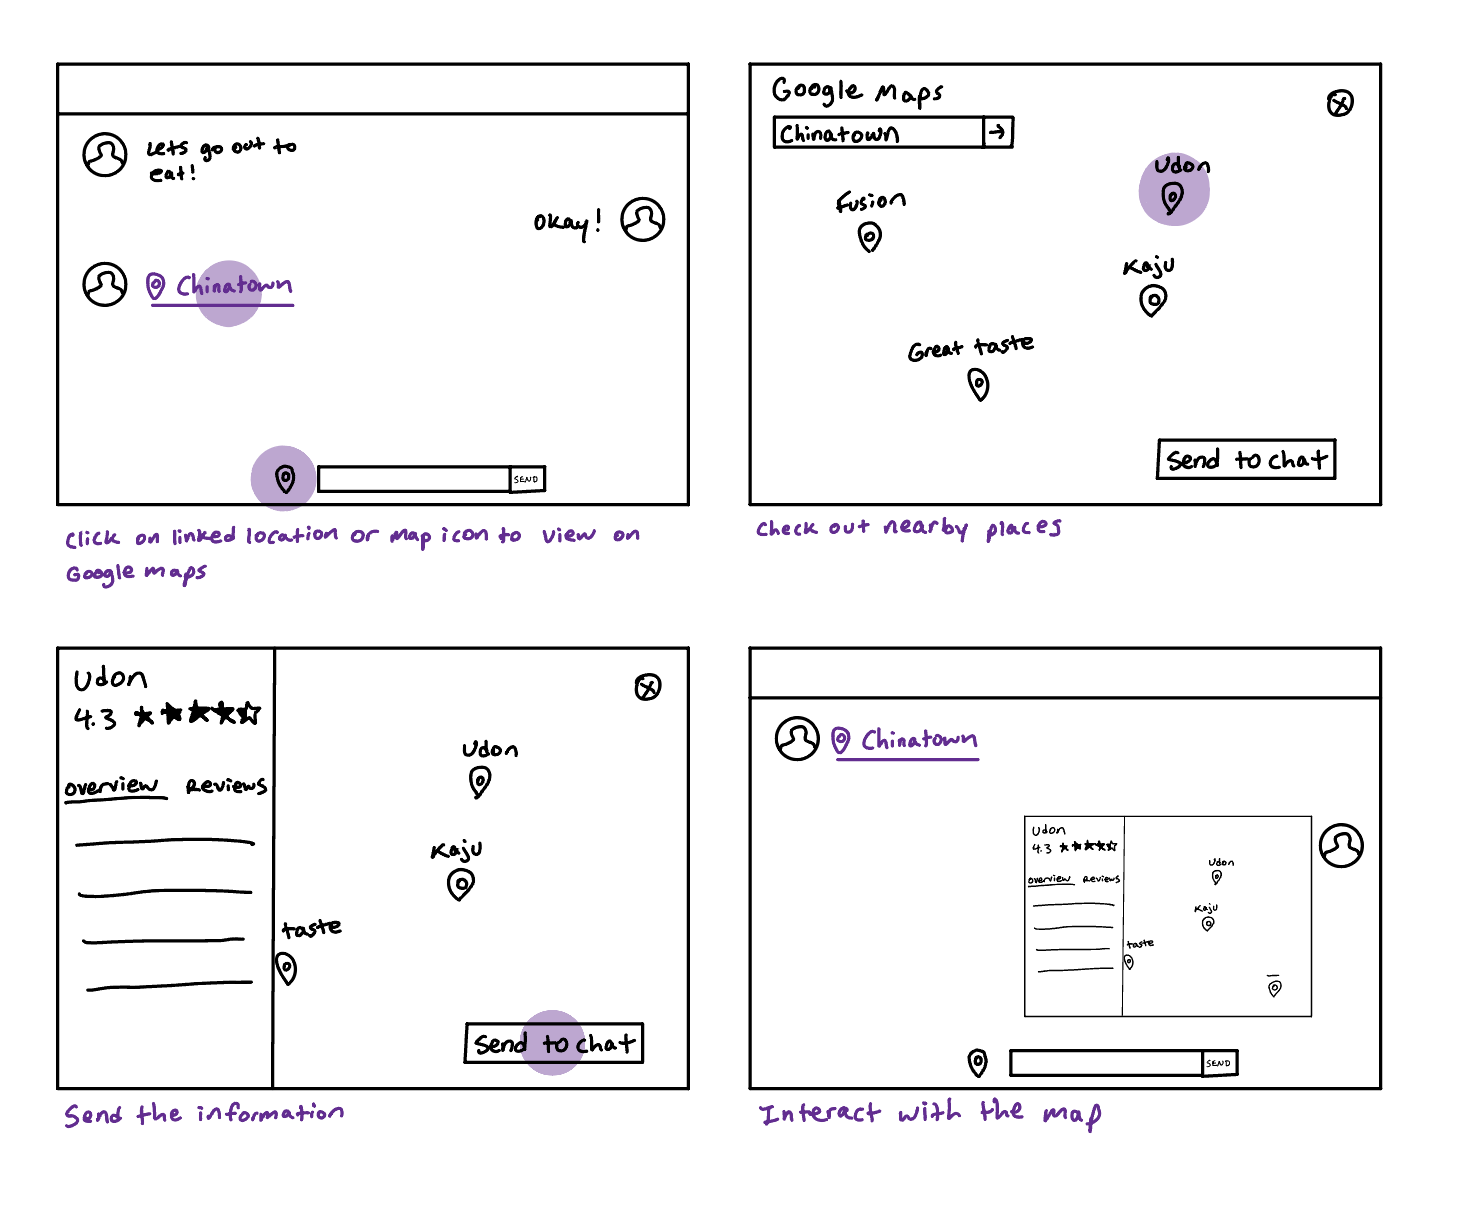 Lets go out to
eat!
Okay!
Chinatown
SEND
Click on linked location or map icon to view on
Google maps
Google Maps
Chinatown
Udon
Fusion
Kaju
Great taste
Send to chat
Check out nearby places
Udon
4.3
Overview Reviews
Udon
Kaju
taste
Send to chat
Send the information
Chinatown
Udon
4.3
Overview Reviews
Udon
Kaju
taste
SEND
Interact with the map